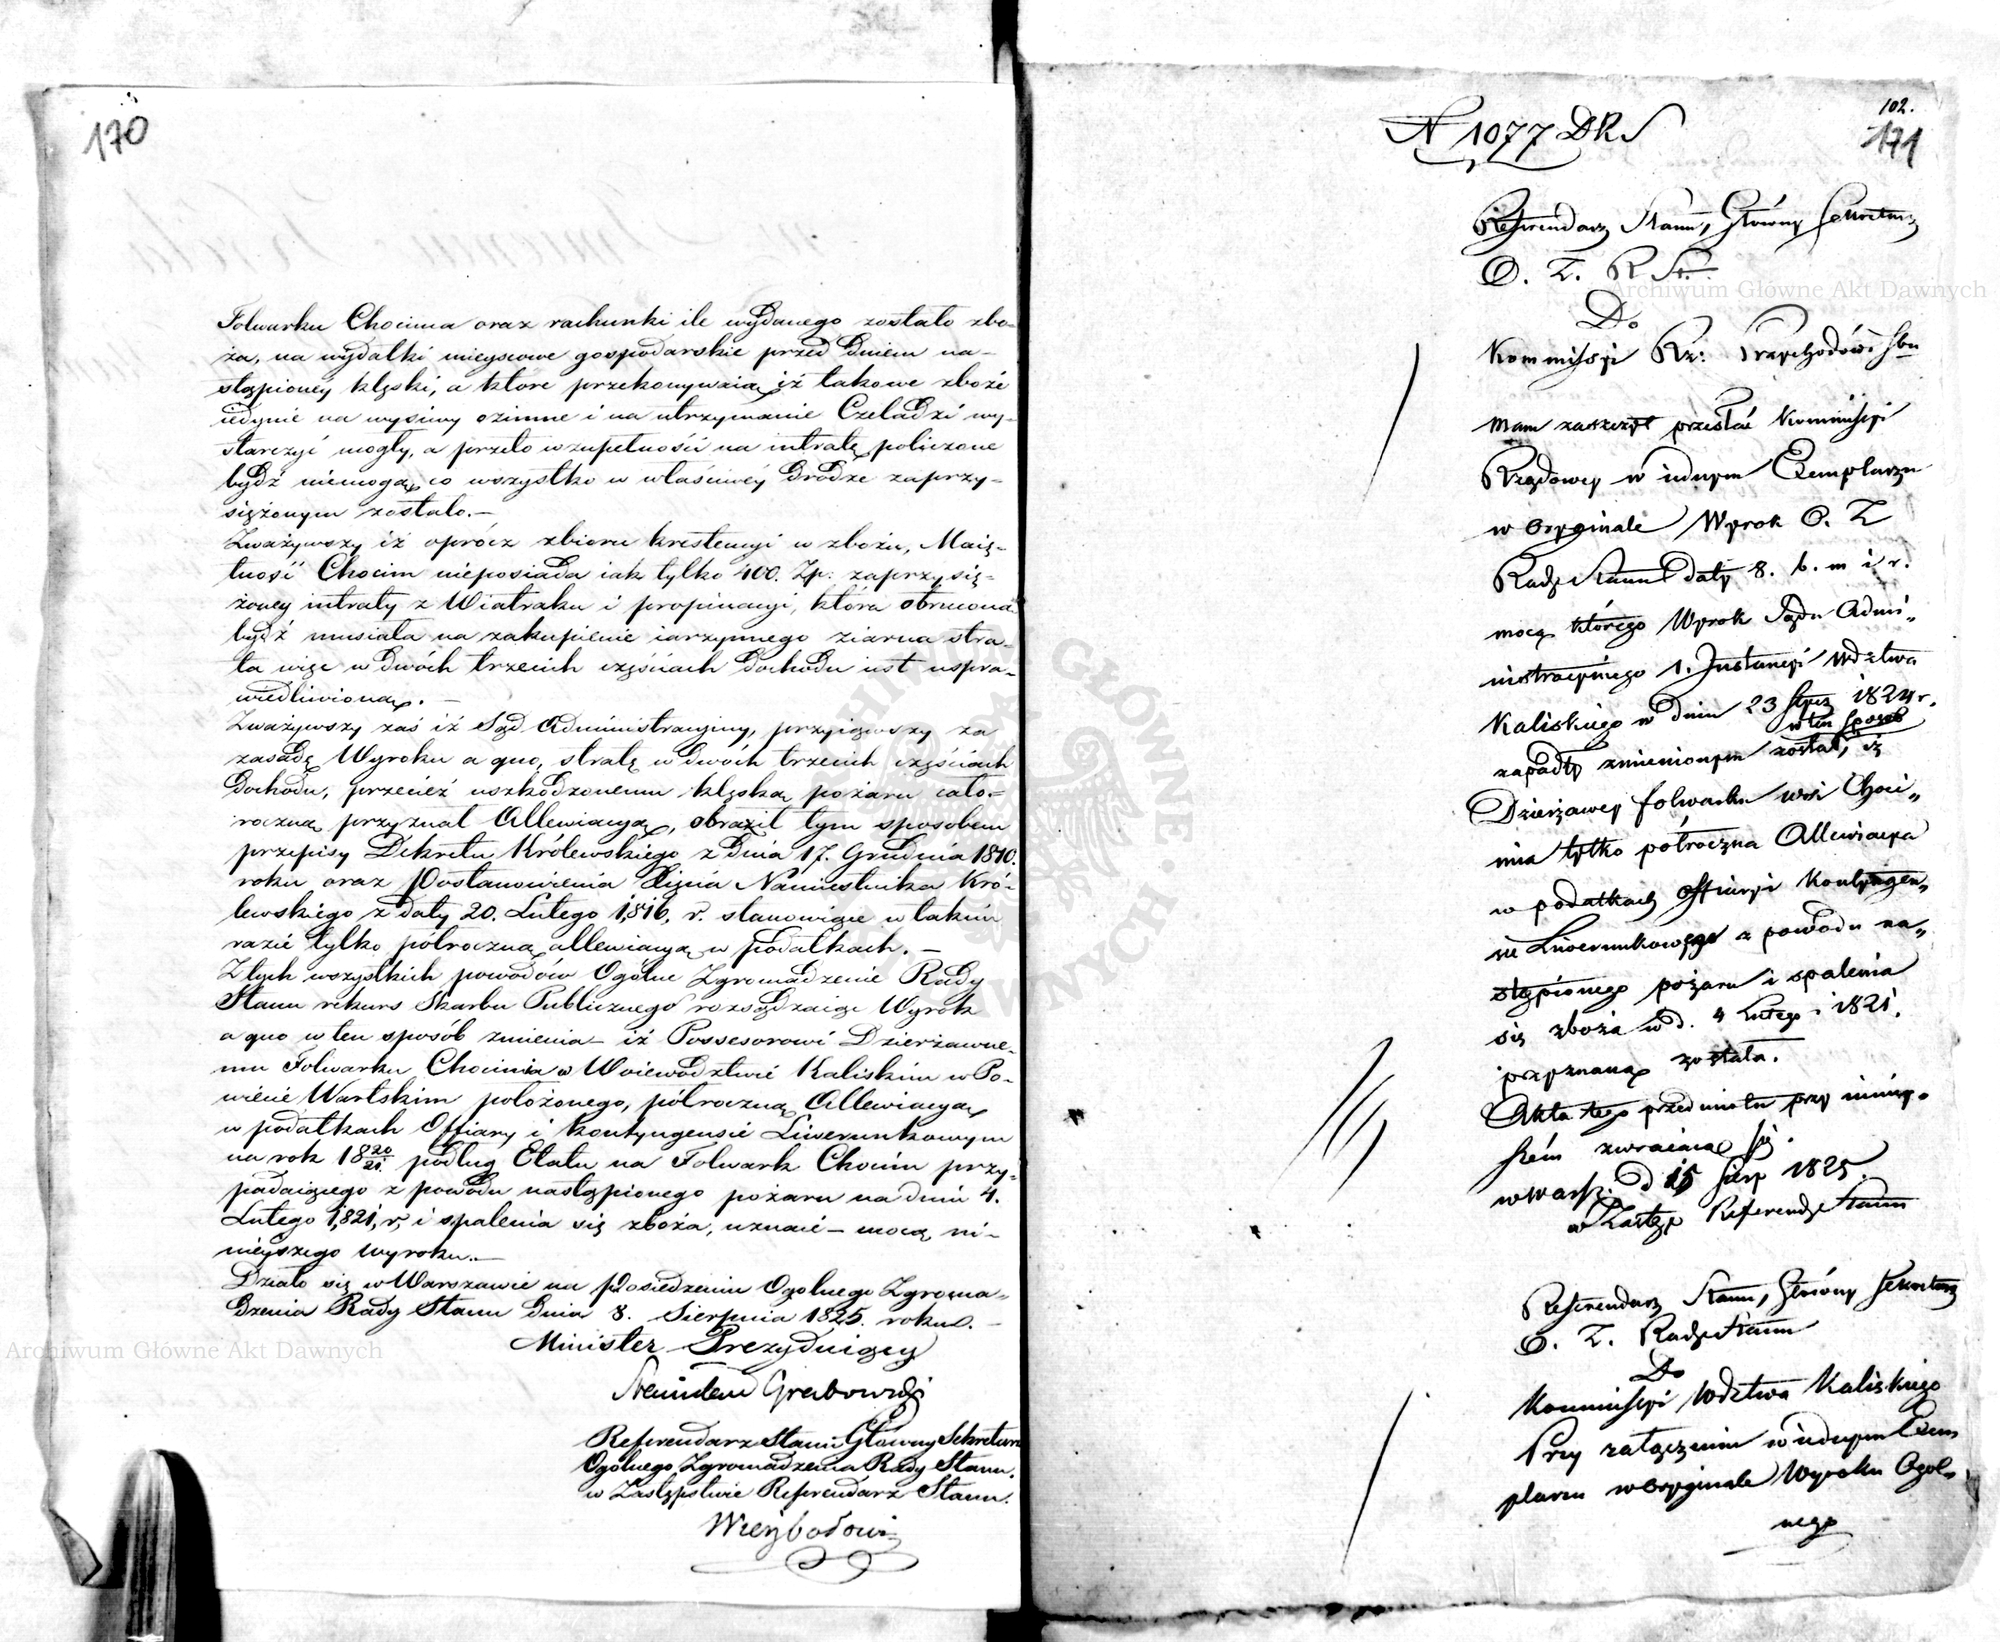 170
Folwarku Chocima oraz rachunki ile wydanego zostało zbo-
ża, na wydatki mieyscowe gospodarskie przed dniem na-
stąpioney klęski, a które przekonywaią iż takowe zboże
iedynie na wysiewy ozimne i na utrzymanie Czeladzi wy-
starczyć mogły, a przeto w zupełności na intratę policzone
bydź niemogą, co wszystko w właściwéy drodze zaprzy-
siężonym zostało.—
Zważywszy iż oprócz zbioru krestencyi w zbożu, Maię-
tność Chocim nieposiada iak tylko 400. Zp: zaprzysię-
żoney intraty z Wiatraku i propinacyi, która obrucona
bydź musiała na zakupienie iarzynnego ziarna stra-
ta więc w dwóch trzecich częściach dochodu iest uspra-
wiedliwioną. —
Zważywszy zaś iż Sąd Administracyiny, przyiąwszy za
zasadę Wyroku a quo, stratę w dwóch trzecich częściach
dochodu, przecież uszkodzonemu klęską pożaru cało-
roczną przyznał Allewiacyą, obraził tym sposobem
przepisy Dekretu Królewskiego z dnia 17. Grudnia 1810.
roku oraz Postanowienia Xięcia Namiestnika Kró-
lewskiego z daty 20. Lutego 1816, r. stanowiące w takim
razie tylko półroczną allewiacyą w podatkach. —
Z tych wszystkich powodów Ogólne Zgromadzenie Rady
Stanu rekurs Skarbu Publicznego rozsądzaiąc Wyrok
a quo w ten sposób zmienia — iż Possesorowi Dzierżawne-
mu Folwarku Chocimia w Woiewództwie Kaliskim w Po-
wiecie Wartskim położonego, półroczną Allewiacyą
w podatkach Offiary i kontyngensie Liwerunkowym
na rok 18 20/21. podług Etatu na Folwark Chocim przy-
padaiącego z powodu nastąpionego pożaru na dniu 4.
Lutego 1821, r. i spalenia się zboża, uznaie — mocą ni-
nieyszego Wyroku.—
Działo się w Warszawie na Posiedzeniu Ogolnego Zgroma-
dzenia Rady Stanu dnia 8. Sierpnia 1825. roku. —
Minister Prezyduiący
Stanisław Grabowski
Referendarz Stanu Główny Sekretarz
Ogólnego Zgromadzenia Rady Stanu.
w Zastępstwie Referendarz Stanu.
102.
171
N 1077 DRS
Referendarz Stanu, Główny Sekretarz
O. Z. R St.
Do
Kommissyi Rz: Przychodów i Sbu
Mam zaszczyt przesłać Kommissyi
Rządowey w iednym Exemplarzu
w oryginale Wyrok O. Z
Rady Stanu daty 8. b. m i r.
mocą którego Wyrok Sądu Admi„
nistracyinego 1. Instancyi Wdztwa
Kaliskiego w dniu 23 Stycz 1824 r.
w ten sposób
zapadły zmienionym został, iż
Dzierżawcy folwarku wsi Choci„
mia tylko półroczna Allewiacya
w podatkach Offiary i Kontyngen„
sie Liwerunkowego z powodu na„
stąpionego pożaru i spalenia
się zboża w d. 4 Lutego 1821.
przyznaną została.
Akta tego przedmiotu przy nineyi.
szém zwracaią się.
w Warsz. d 15 Sierp 1825.
w Zastęp Referendz Stanu
Referendarz Stanu, Główny Sekretarz
O. Z. Rady Stanu
Do
Kommissyi Wdztwa Kaliskiego
Przy załączeniu w iednym Exem
plarzu w oryginale Wyroku Ogól„
nego
Archiwum Główne Akt Dawnych
Archiwum Główne Akt Dawnych